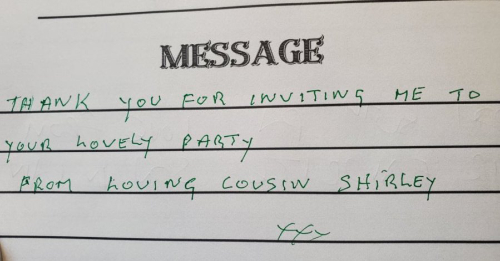 MESSAGE
THANK YOU FOR INVITING ME TO
YOUR LOVELY PARTY
FROM LOVING COUSIN SHIRLEY
XXX